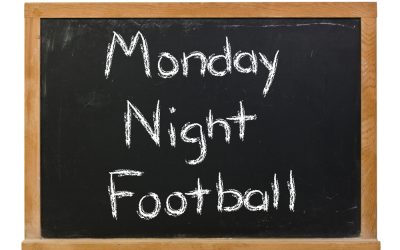 Monday
Night
Football